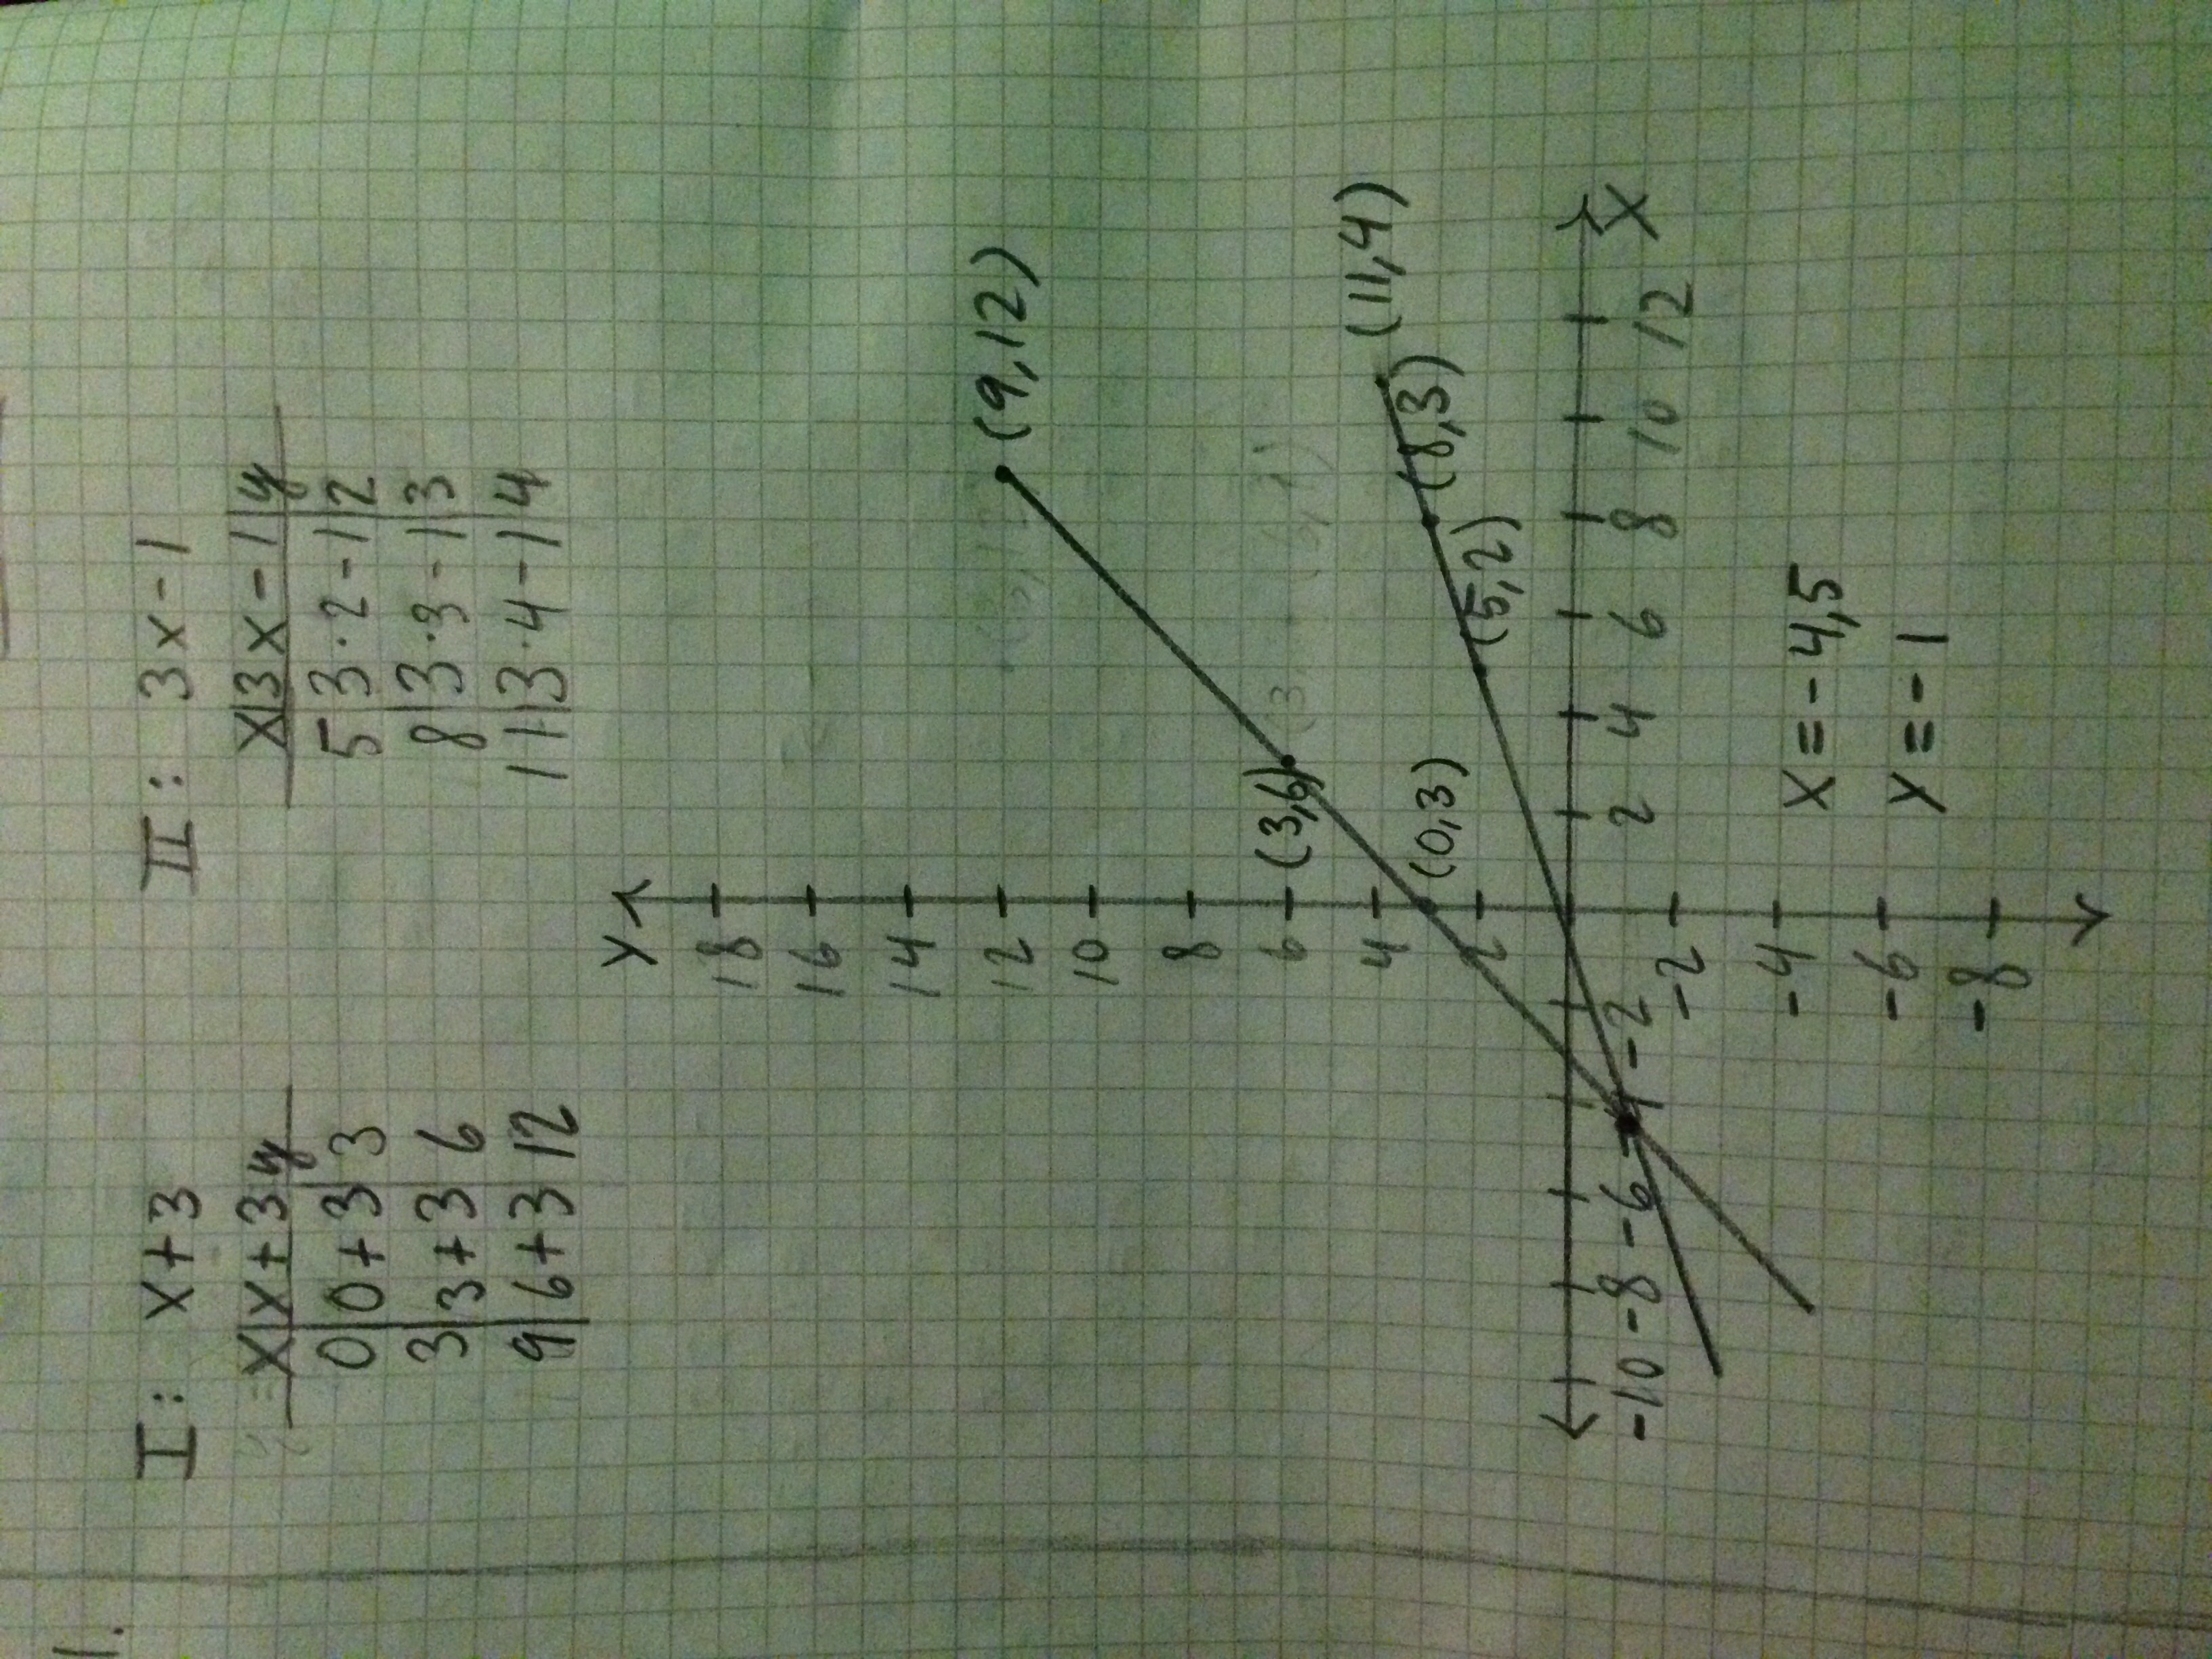 1.
I: x+3
x x+3 y
0 0+3 3
3 3+3 6
9 6+3 12
II: 3x-1
x 3x-1 y
5 3·2-1 2
8 3·3-1 3
11 3·4-1 4
y
18
16
14
12
10
8
6
4
2
(9,12)
(3,6)
(0,3)
(11,4)
(8,3)
(5,2)
-10 -8 -6 -4 -2 2 4 6 8 10 12 X
-2
-4
-6
-8
X=-4,5
Y=-1